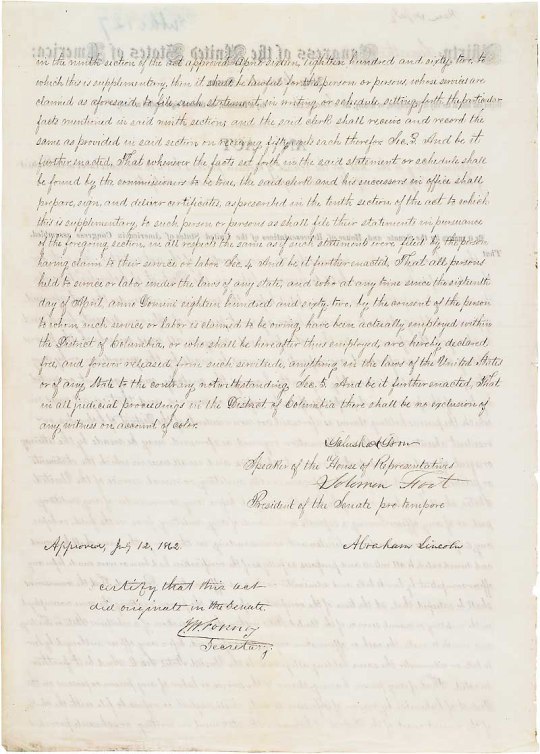 in the ninth section of the act approved April sixteen, eighteen hundred and sixty-two, to
which this is supplementary, then it shall be lawful for the person or persons, whose services are
claimed as aforesaid, to file such statement, in writing or schedule, setting forth the particular
facts mentioned in said ninth section; and the said clerk shall receive and record the
same as provided in said section on receiving fifty cents each therefor Sec. 3. And be it
further enacted, That whenever the facts set forth in the said statement or schedule shall
be found by the commissioners to be true, the said clerk and his successors in office shall
prepare, sign, and deliver certificates, as presented in the tenth section of the act to which
this is supplementary, to such person or persons as shall file their statements in pursuance
of the foregoing section, in all respects the same as if such statements were filed by the person
having claim to their service or labor Sec. 4 And be it further enacted, That all persons
held to service or labor under the laws of any state, and who at any time since the sixteenth
day of April, anno Domini eighteen hundred and sixty-two, by the consent of the person
to whom such service or labor is claimed to be owing, have been actually employed within
the District of Columbia, or who shall be hereafter thus employed, are hereby declared
free, and forever released from such servitude, anything in the laws of the United States
or of any State to the contrary notwithstanding. Sec. 5. And be it further enacted, That
in all judicial proceedings in the District of Columbia there shall be no exclusion of
any witness on account of color.
Galusha A Grow
Speaker of the House of Representatives
Solomon Foot
President of the Senate pro tempore
Approved, July 12, 1862.
Abraham Lincoln
I certify that this act
did originate in the Senate.
J W Forney
Secretary